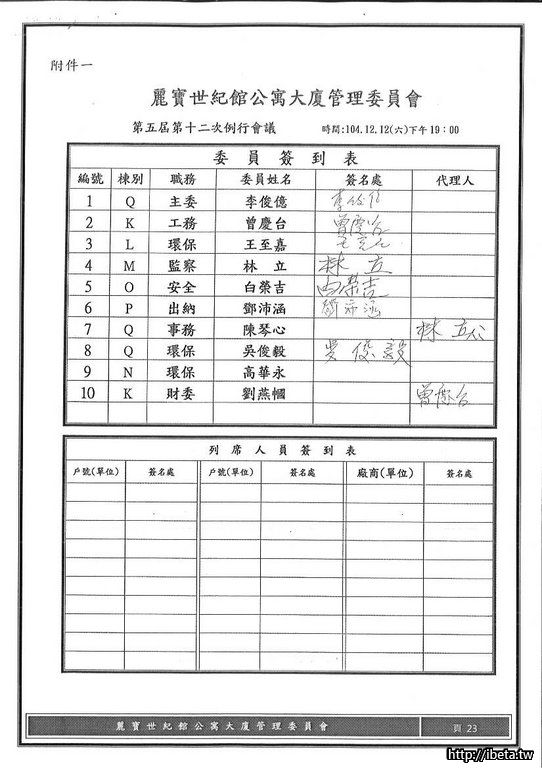 附件一
麗寶世紀館公寓大廈管理委員會
第五屆第十二次例行會議 時間:104.12.12(六)下午19:00
委員簽到表
編號 棟別 職務 委員姓名 簽名處 代理人
1 Q 主委 李俊億
2 K 工務 曾慶台 曾慶台
3 L 環保 王至嘉
4 M 監察 林立 林立
5 O 安全 白榮吉 白榮吉
6 P 出納 鄧沛涵 鄧沛涵
7 Q 事務 陳琴心 林立
8 Q 環保 吳俊毅 吳俊毅
9 N 環保 高華永
10 K 財委 劉燕幗 曾慶台
列席人員簽到表
戶號(單位) 簽名處 戶號(單位) 簽名處 廠商(單位) 簽名處
麗寶世紀館公寓大廈管理委員會 頁 23
http://ibeta.tw